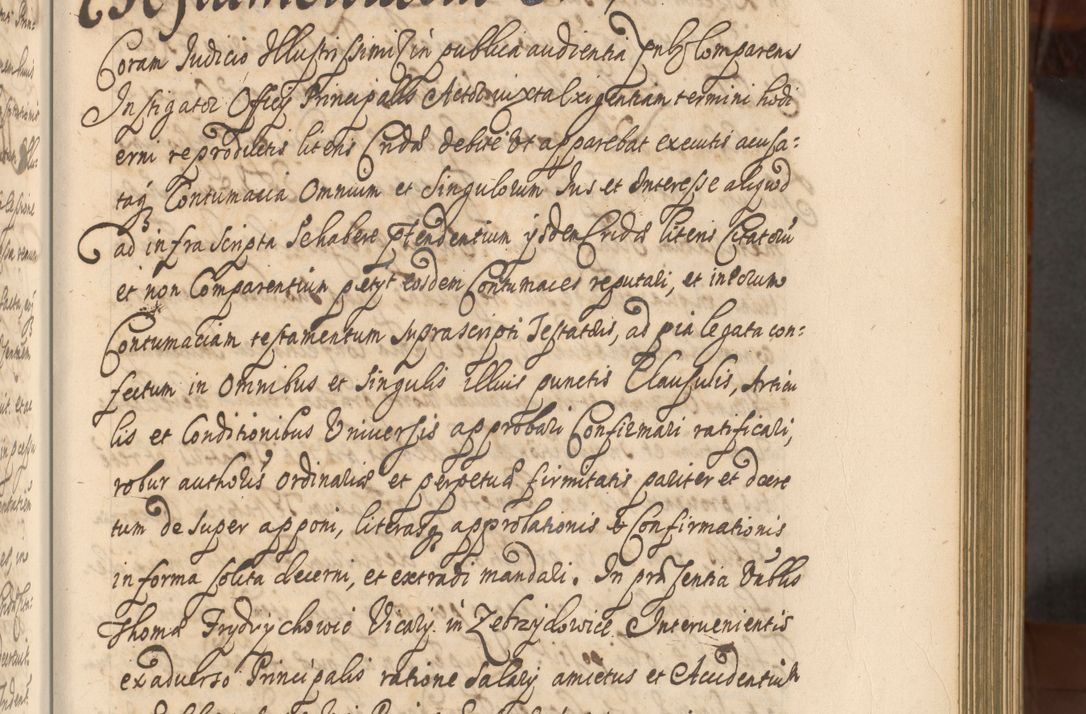 Coram Judicio Illustrissimi in publica audientia Comparens
Instigator Officij Principalis Actor iuxta exigentiam termini hodi
erni reproductis literis Cridae debite ut apparebat executis accusa=
taq Contumacia Omnium et Singulorum Jus et Interesse aliquod
ad infra scripta Se habere ptendentium ijsdem Cridae literis Citatorū
et non Comparentium petijt eosdem Contumaces reputari, et in eorum
Contumaciam testamentum suprascripti Testatoris, ad pia legata con=
fectum in Omnibus et Singulis illius punctis Clausulis, Articu
lis et Conditionibus Universis approbari Confirmari ratificari,
robur authoris ordinariae et perpetuae firmitatis pariter et decre
tum de Super apponi, literasq approbationis & Confirmationis
in forma solita decerni, et extradi mandari. In prāsentia
Thoma Frydrychowic Vicarij in Zebrzydowice Intervenientis
ex adverso Principalis ratione Salarij amictus et Accidentium